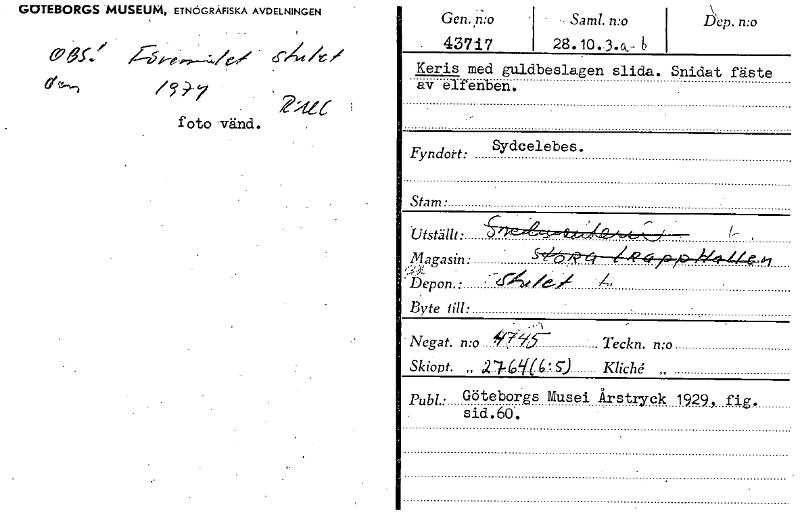 GÖTEBORGS MUSEUM, ETNOGRAFISKA AVDELNINGEN
OBS! Föremålet stulet
den 1974
foto vänd.
Gen. n:o Saml. n:o Dep. n:o
43717 28.10.3.a-b
Keris med guldbeslagen slida. Snidat fäste
av elfenben.
Fyndort: Sydcelebes.
Stam:
Utställt:
Magasin: Stora trapphallen
Depon.: stulet
Byte till:
Negat. n:o 4745 Teckn. n:o
Skiopt. „ 2764(6:5) Kliché „
Publ.: Göteborgs Musei Årstryck 1929, fig.
sid.60.